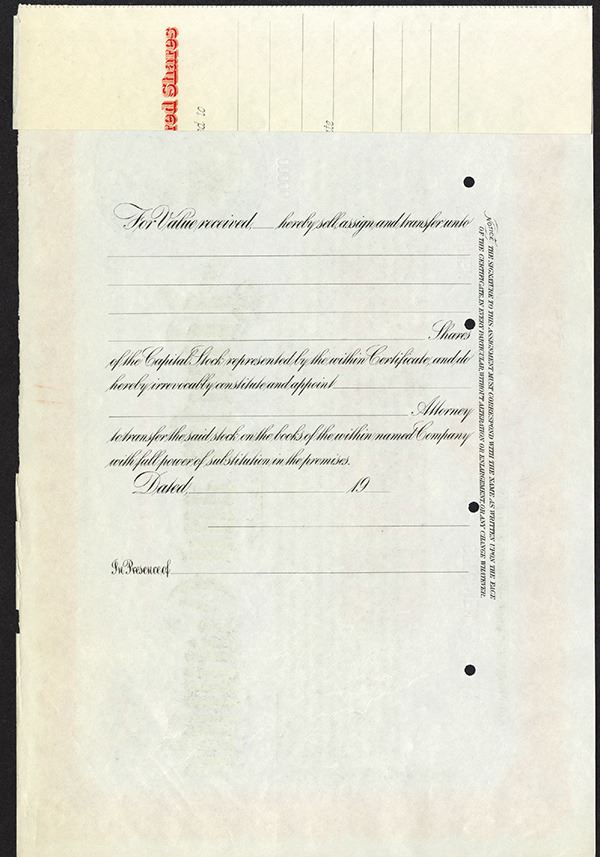 red Shares
d to
For Value received, hereby sell, assign and transfer unto
Shares
of the Capital Stock represented by the within Certificate, and do
hereby irrevocably constitute and appoint
Attorney
to transfer the said stock on the books of the within named Company
with full power of substitution in the premises.
Dated, 19
In Presence of
NOTICE. THE SIGNATURE TO THIS ASSIGNMENT MUST CORRESPOND WITH THE NAME AS WRITTEN UPON THE FACE
OF THE CERTIFICATE, IN EVERY PARTICULAR, WITHOUT ALTERATION OR ENLARGEMENT, OR ANY CHANGE WHATEVER.